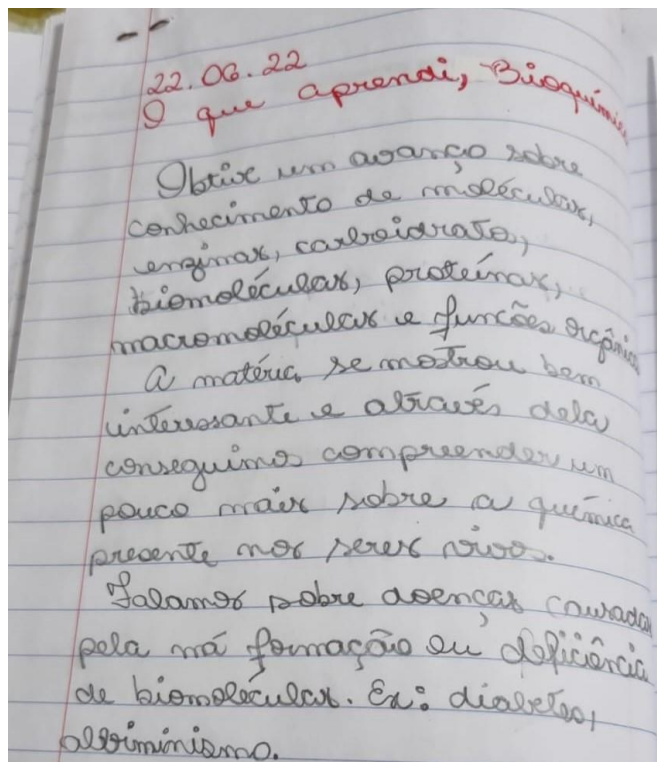 22.06.22
O que aprendi, Bioquímica
Obtive um avanço sobre
conhecimento de moléculas,
enzimas, carboidratos,
biomoléculas, proteínas,
macromoléculas e funções orgânicas
A matéria se mostrou bem
interessante e através dela
conseguimos compreender um
pouco mais sobre a química
presente nos seres vivos.
Falamos sobre doenças causadas
pela má formação ou deficiência
de biomoléculas. Ex: diabetes,
albiminismo.